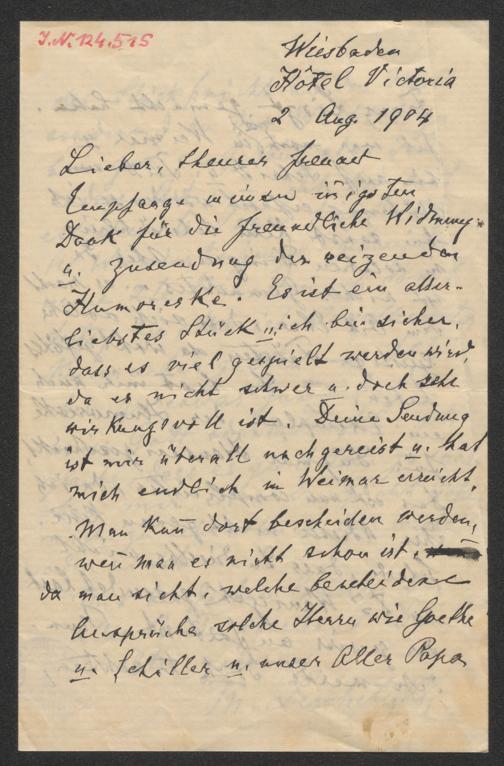 J.N. 124.515
Wiesbaden
Hôtel Victoria
2 Aug. 1904
Lieber, theurer Freund
Empfange meinen innigsten
Dank für die freundliche Widmung
u. Zusendung der reizenden
Humoreske. Es ist ein aller-
liebstes Stück u. ich bin sicher,
dass es viel gespielt werden wird,
da es nicht schwer u. doch sehr
wirkungsvoll ist. Deine Sendung
ist mir überall nachgereist u. hat
mich endlich in Weimar erreicht.
Man kan̅ dort bescheiden werden,
wen̅ man es nicht schon ist,
da man sieht, welche bescheidene
Ansprüche solche Herrn wie Goethe
u. Schiller u. unser Aller Papa